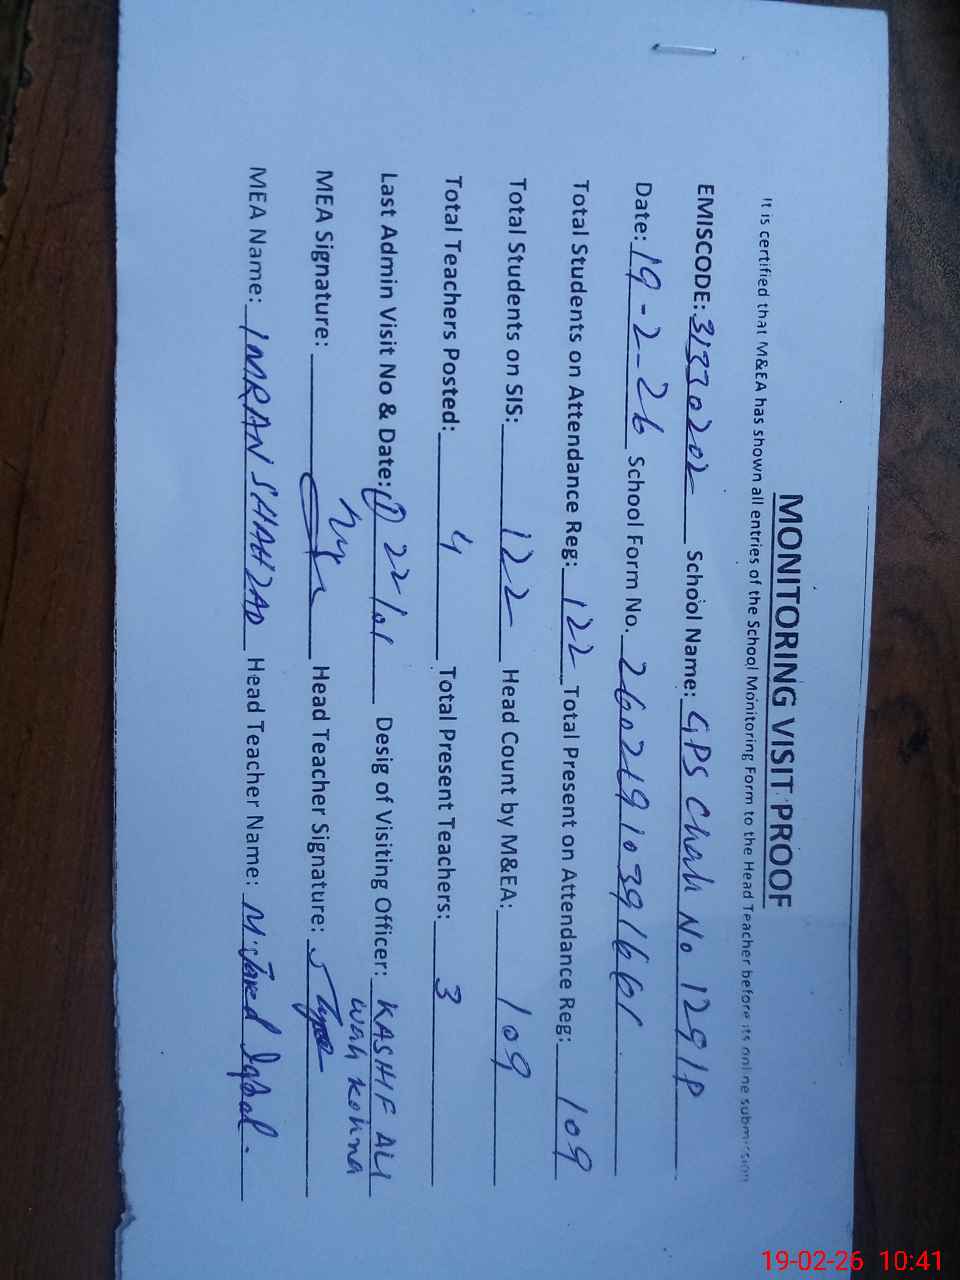 MONITORING VISIT PROOF
It is certified that M&EA has shown all entries of the School Monitoring Form to the Head Teacher before its online submission
EMISCODE: 31330202 School Name: GPS Chak No 129 1P
Date: 19-2-26 School Form No. 26021910391661
Total Students on Attendance Reg: 122 Total Present on Attendance Reg: 109
Total Students on SIS: 122 Head Count by M&EA: 109
Total Teachers Posted: 4 Total Present Teachers: 3
Last Admin Visit No & Date: 1 22/01 Desig of Visiting Officer: KASHIF ALI
MEA Signature: Head Teacher Signature:
MEA Name: IMRAN SHAHZAD Head Teacher Name: M. Javed Iqbal.
19-02-26 10:41